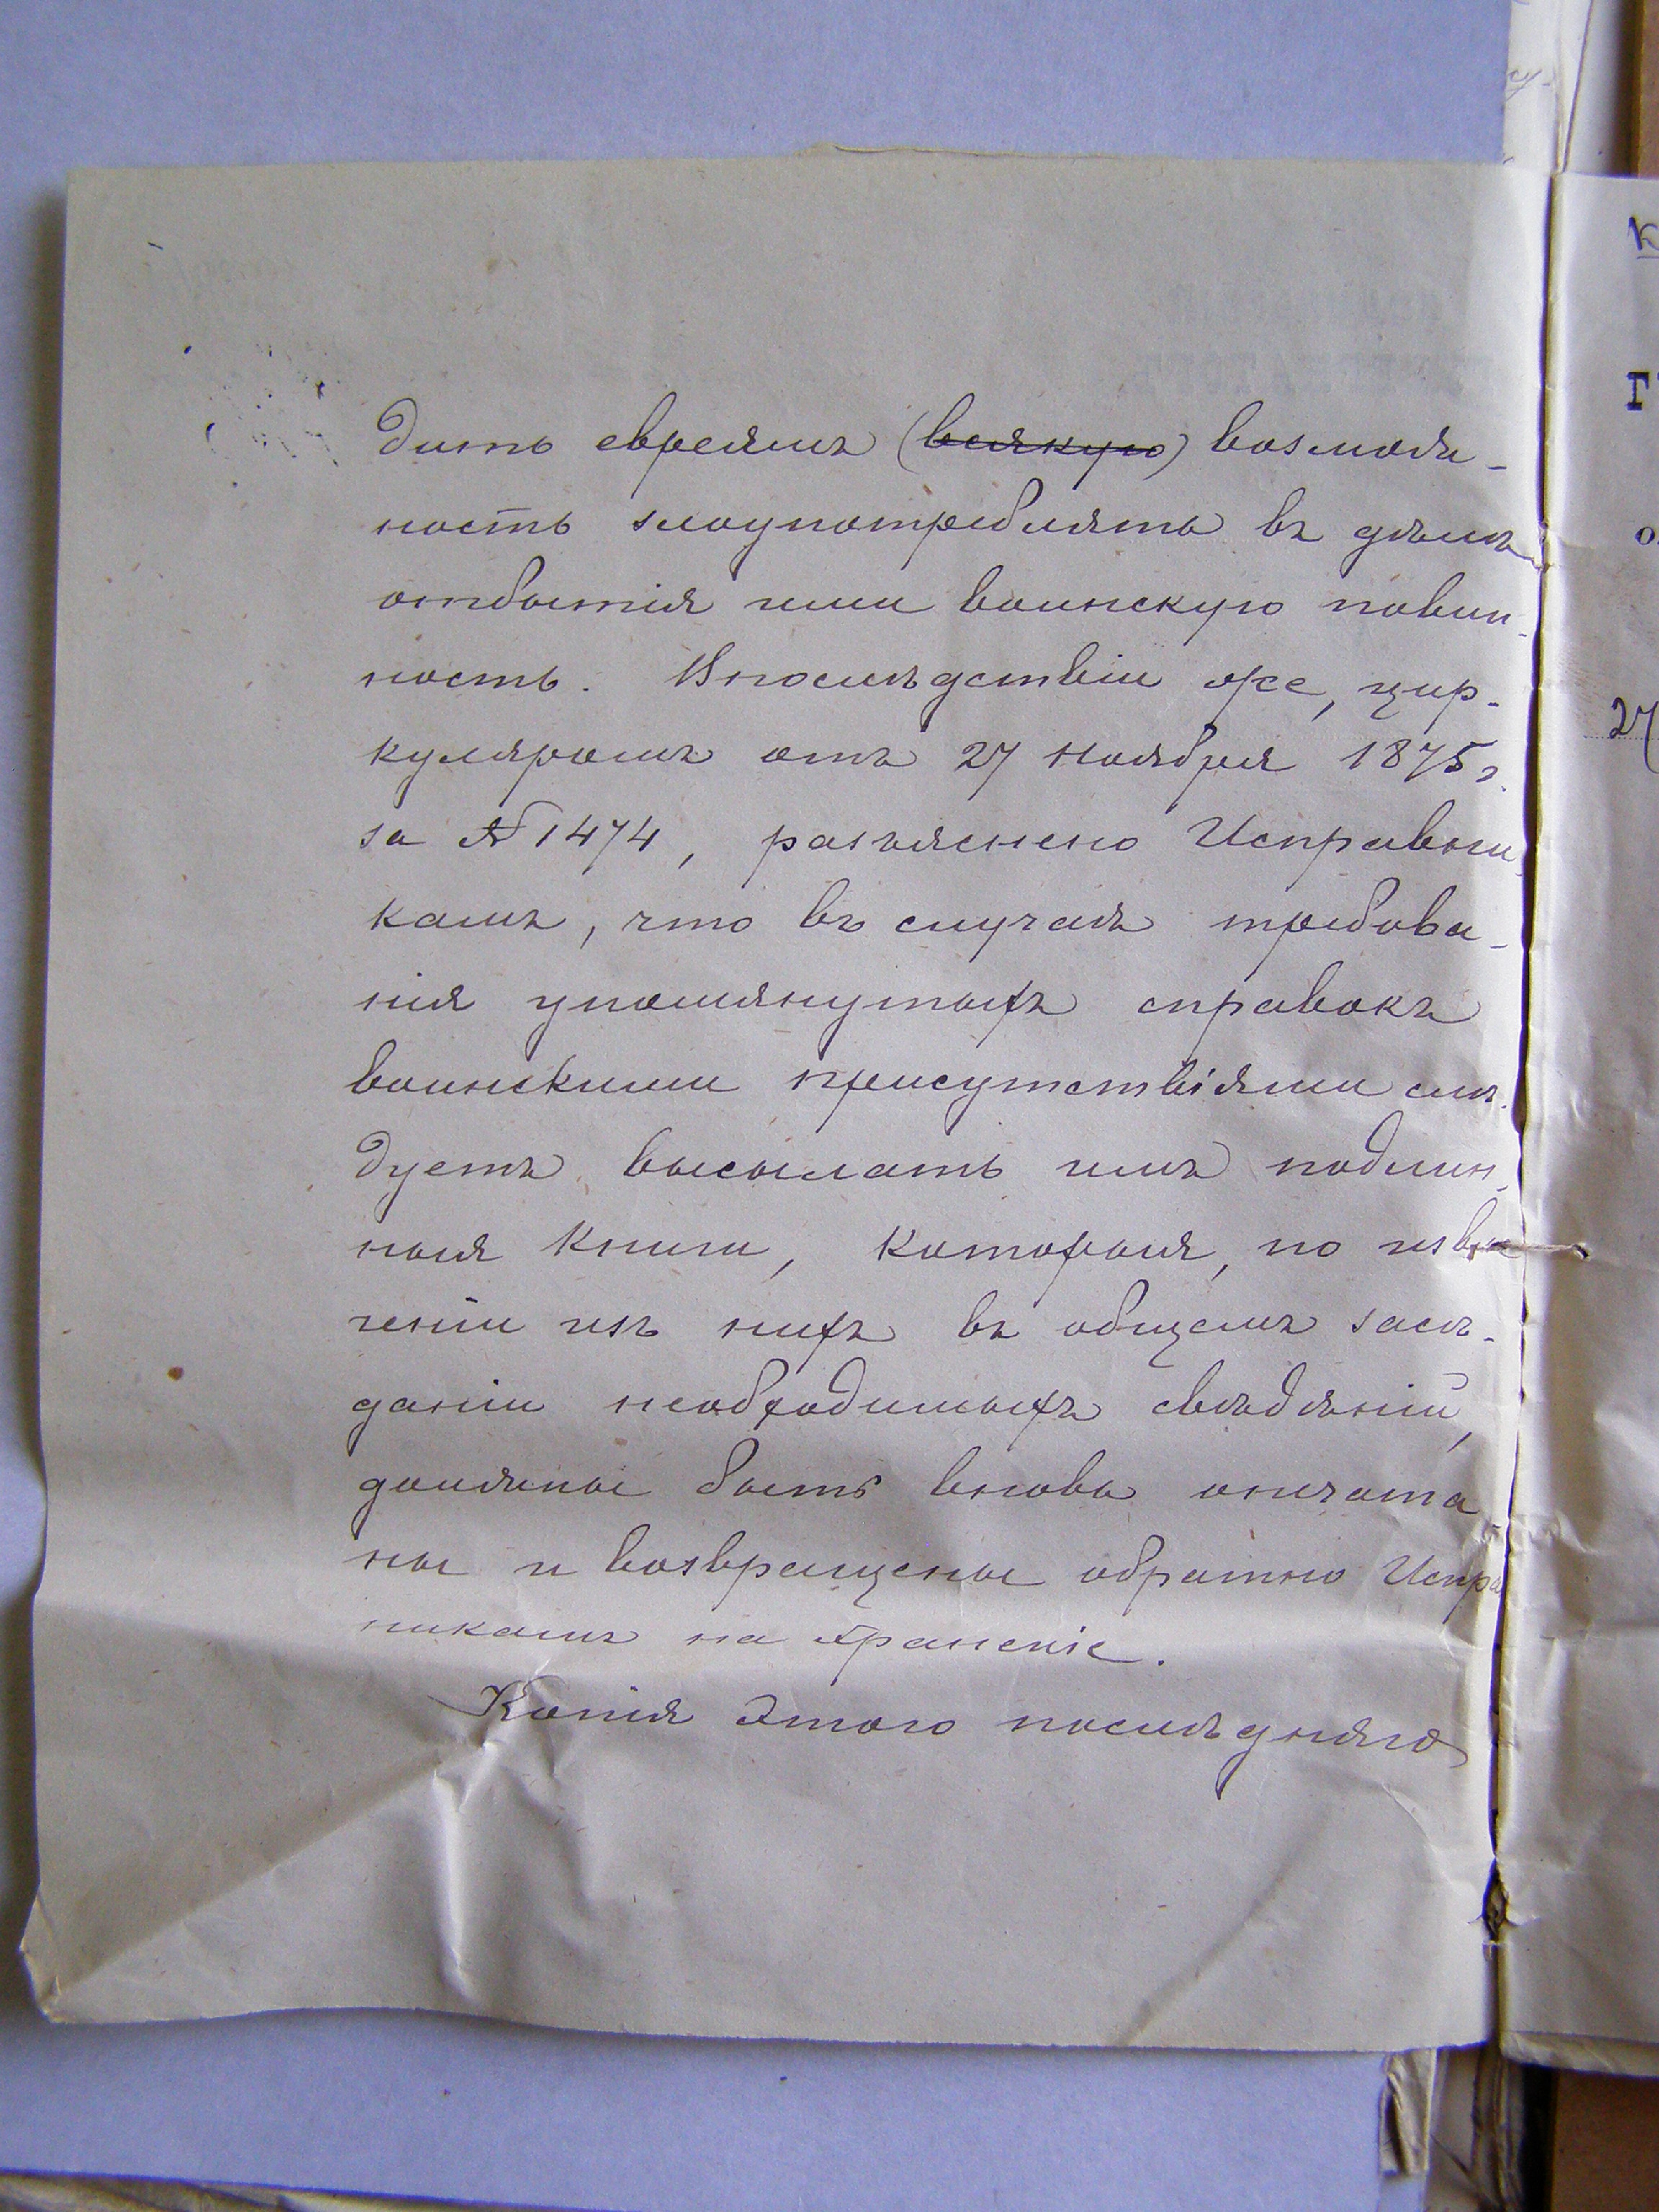 дить евреямъ (всякую) возмож-
ность злоупотреблять въ дѣлѣ
отбытія ими воинскую повин-
ность. Впослѣдствіи же, цир-
куляромъ отъ 27 Ноября 1875 г.
за № 1474, разъяснено Исправни-
камъ, что въ случаѣ требова-
нія упомянутыхъ справокъ
воинскими присутствіями слѣ-
дуетъ высылать имъ подлин-
ныя книги, которыя, по извле
ченіи изъ нихъ въ общемъ засѣ-
даніи необходимыхъ свѣдѣній,
должны быть вновь опечата-
ны и возвращены обратно Испра
никамъ на храненіе.
Копія этого послѣдняго
К
Г
27